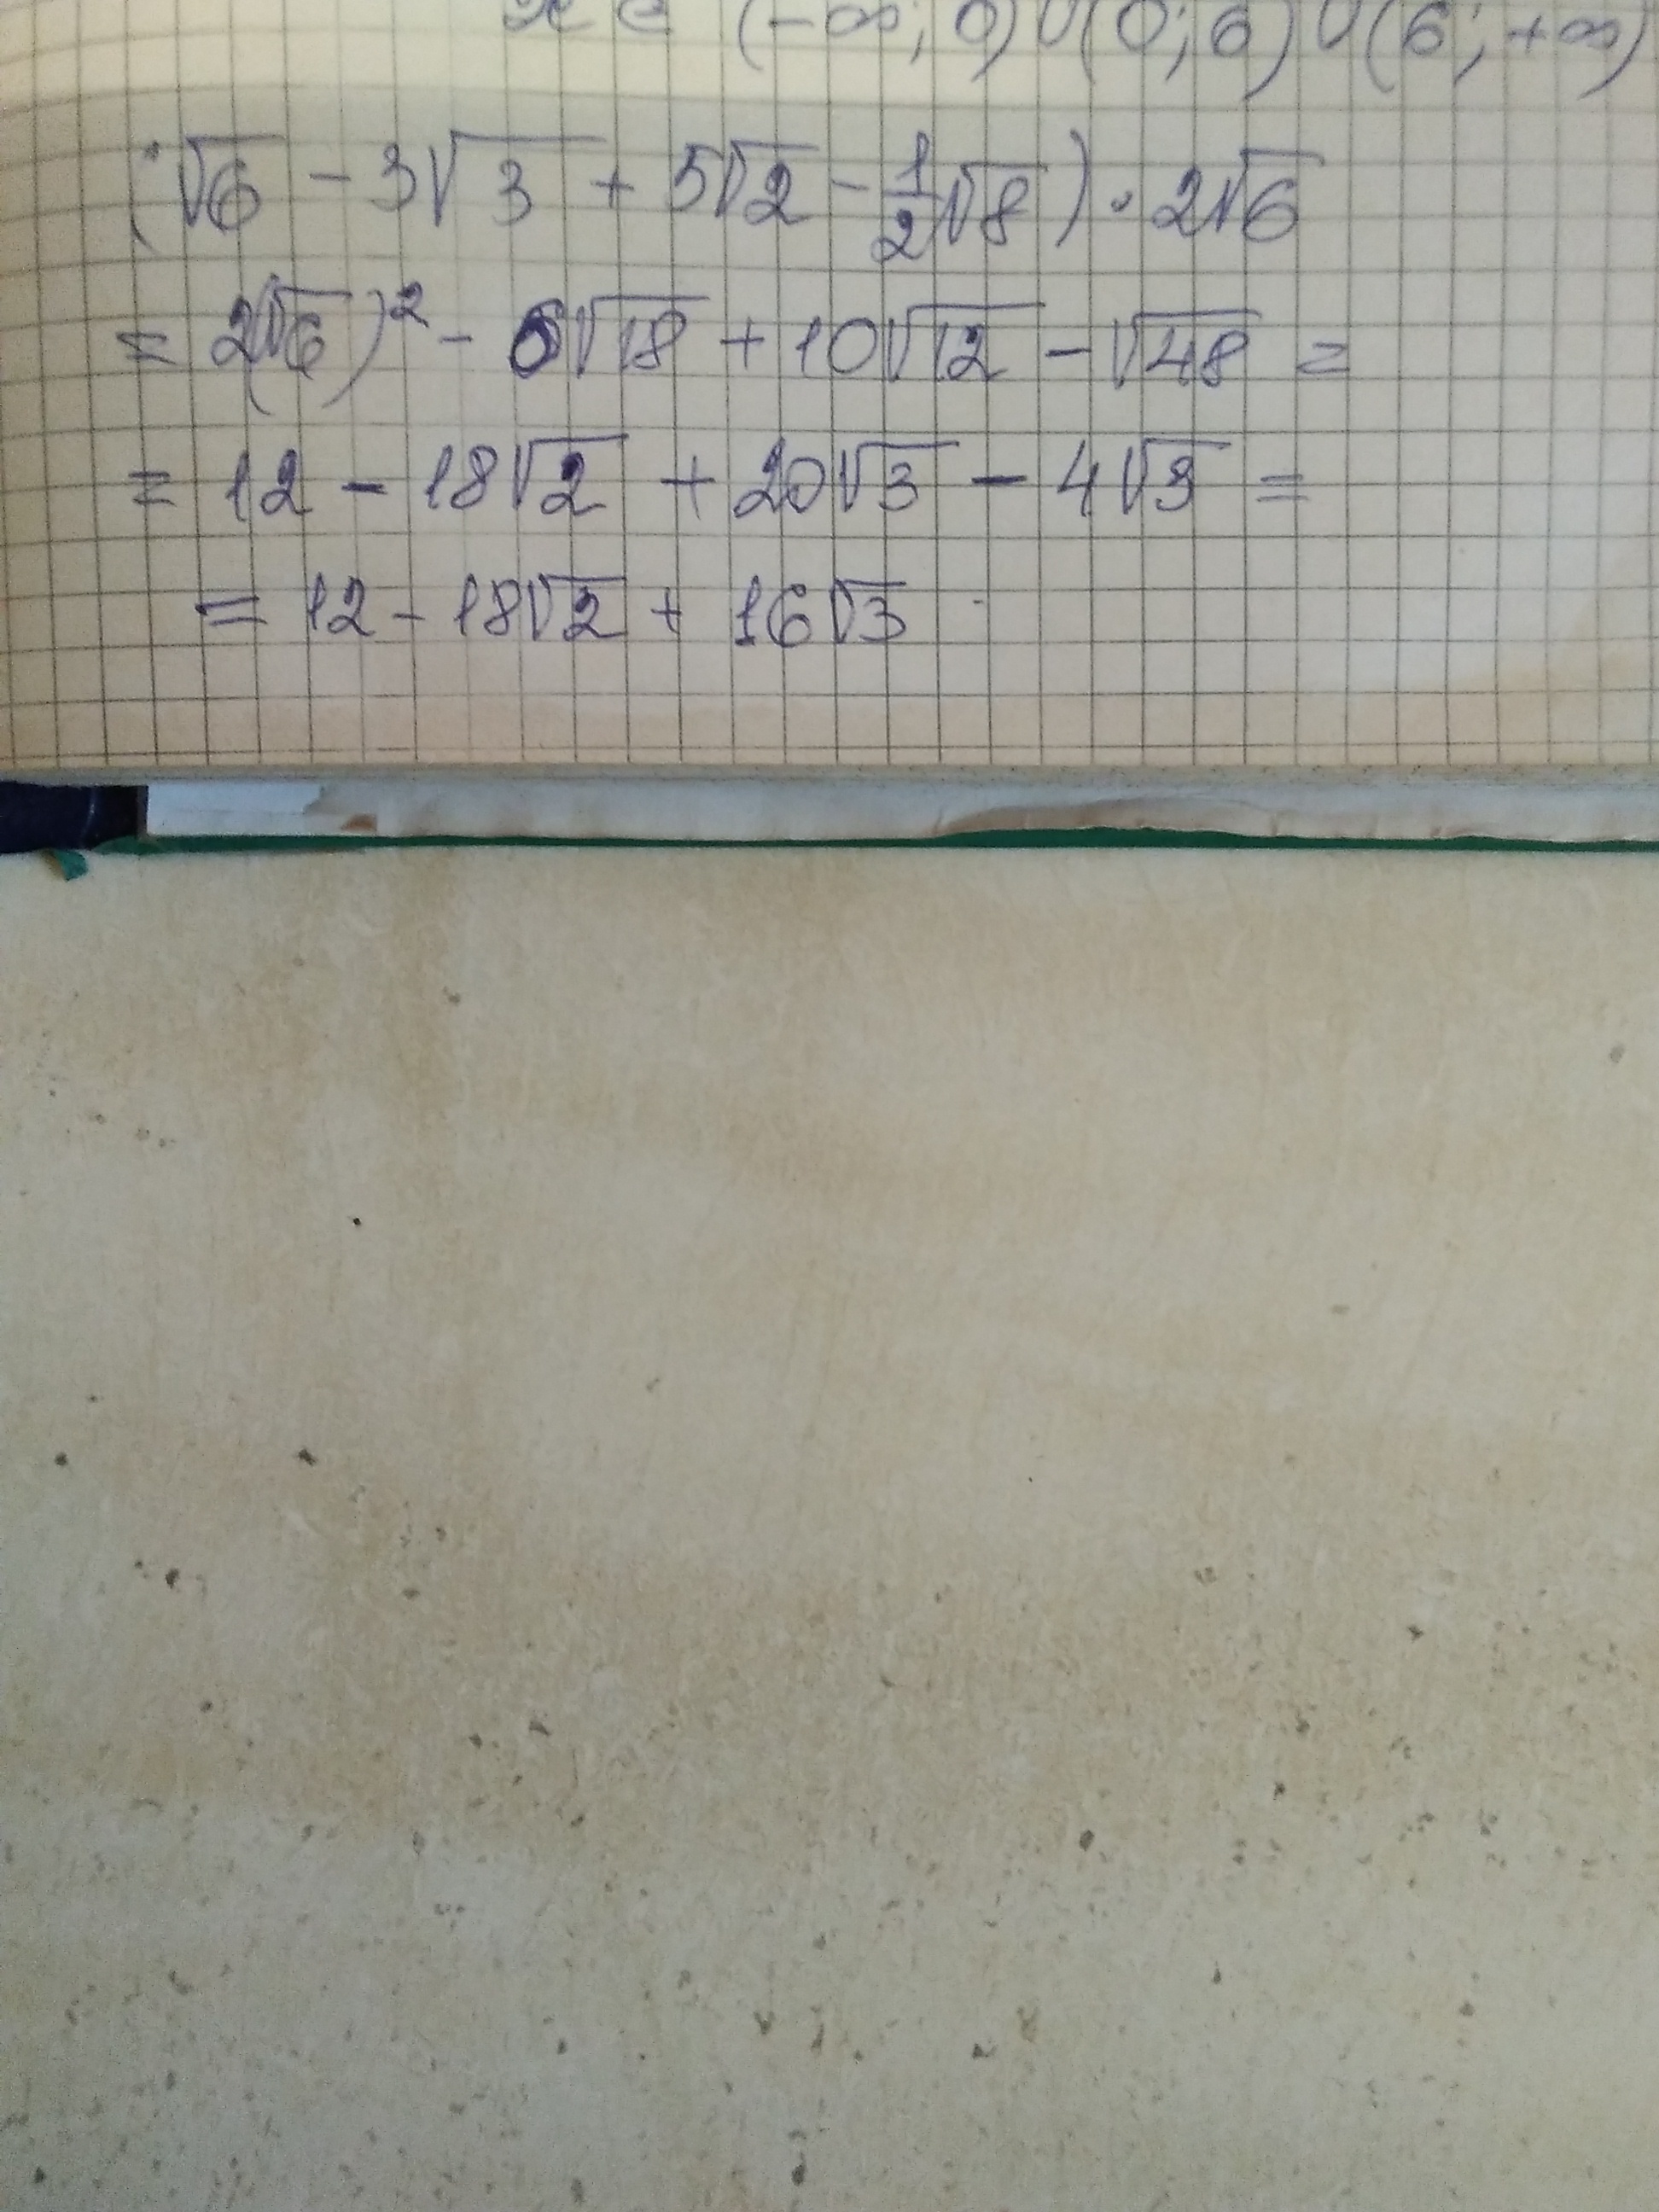 x ∈ (-∞; 0) ∪ (0; 6) ∪ (6; +∞)
(√6 - 3√3 + 5√2 - 1/2√8) · 2√6
= 2(√6)² - 6√18 + 10√12 - √48 =
= 12 - 18√2 + 20√3 - 4√3 =
= 12 - 18√2 + 16√3